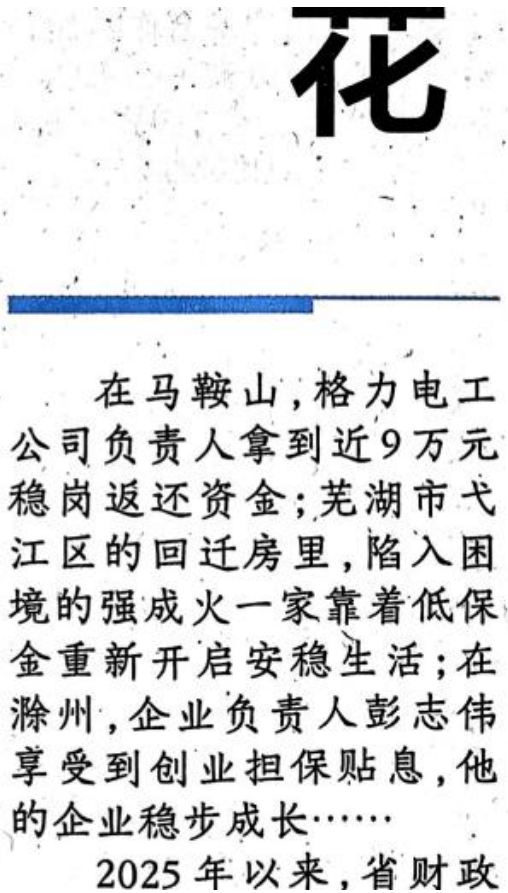 花
在马鞍山,格力电工
公司负责人拿到近9万元
稳岗返还资金;芜湖市弋
江区的回迁房里,陷入困
境的强成火一家靠着低保
金重新开启安稳生活;在
滁州,企业负责人彭志伟
享受到创业担保贴息,他
的企业稳步成长……
2025年以来,省财政